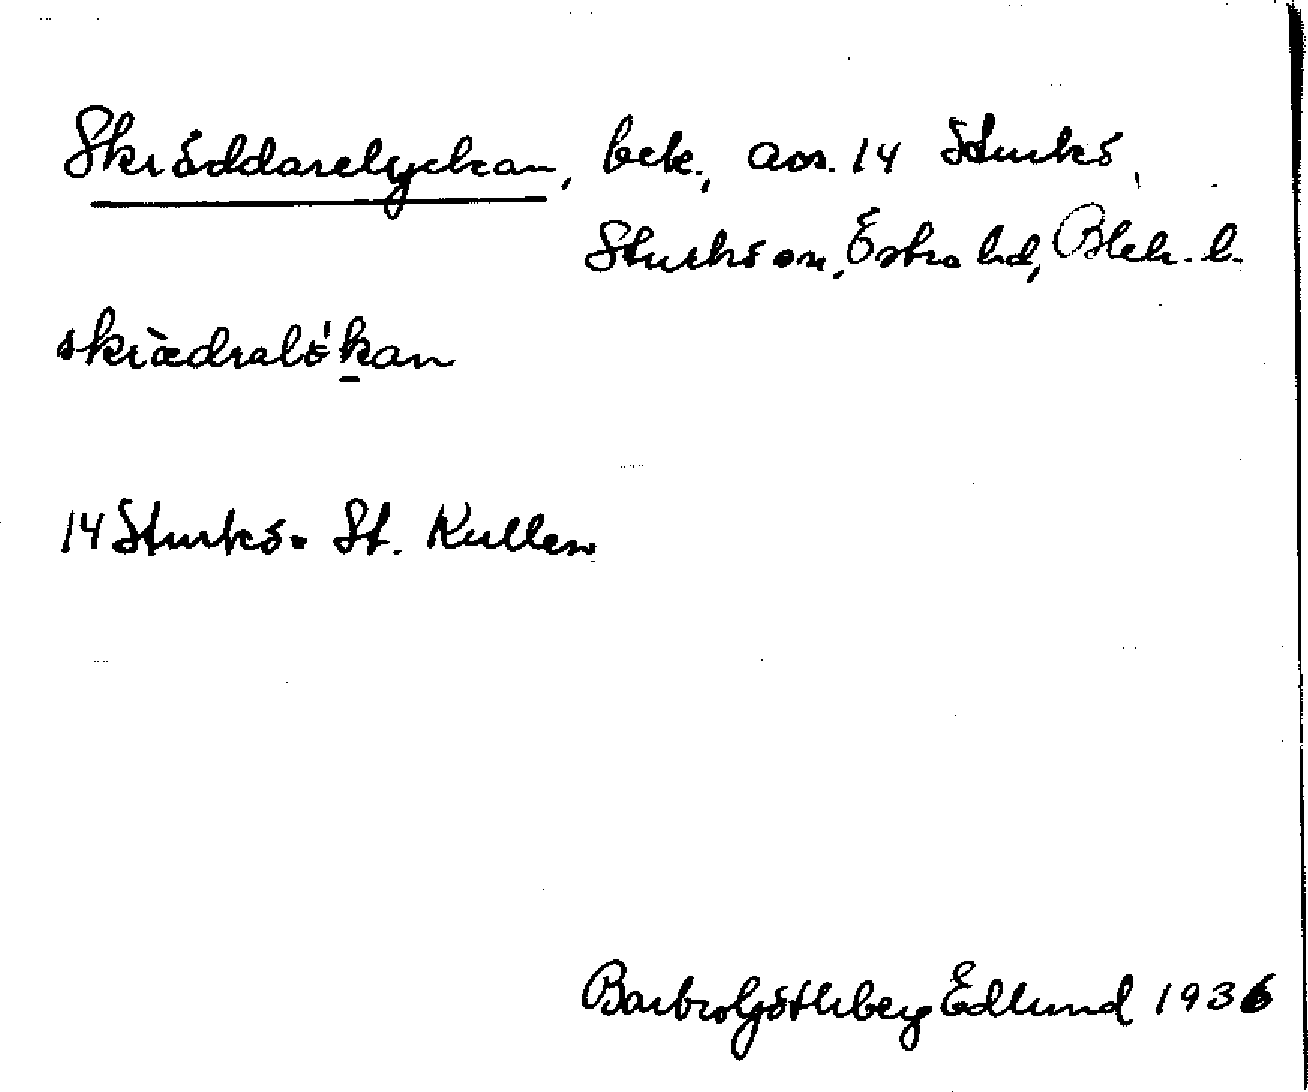 Skräddarelyckan, bek., avs. 14 Sturkö,
Sturkö sn, Östra hd, Blek. l.
skrædralö̀kan
14 Sturkö. St. Kullen
Barbro Göthberg Edlund 1936